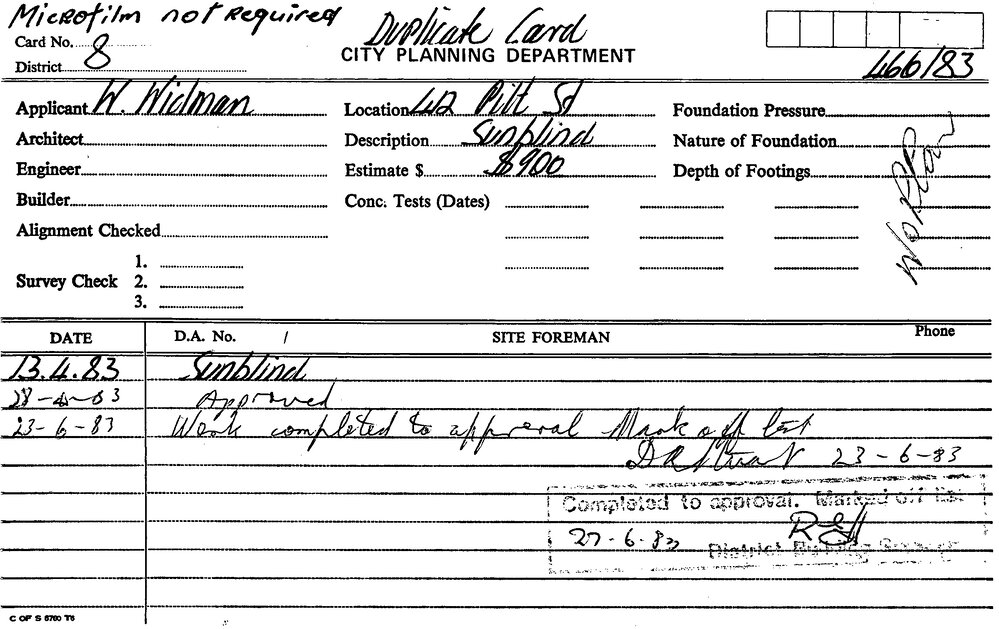 Microfilm not Required
Duplicate Card
Card No.
District 8
CITY PLANNING DEPARTMENT
466/83
Applicant W. Widman
Location 42 Pitt St
Foundation Pressure
Architect
Description Sunblind
Nature of Foundation
Engineer
Estimate $ $900
Depth of Footings
No Plan
Builder
Conc. Tests (Dates)
Alignment Checked
Survey Check
1.
2.
3.
DATE D.A. No. / SITE FOREMAN Phone
13.4.83 Sunblind
28-4-83 Approved
23-6-83 Work completed to approval Mark off list
23-6-83
Completed to approval. Marked off list
27-6-83
District Building Surveyor
C OF S 5760 T6